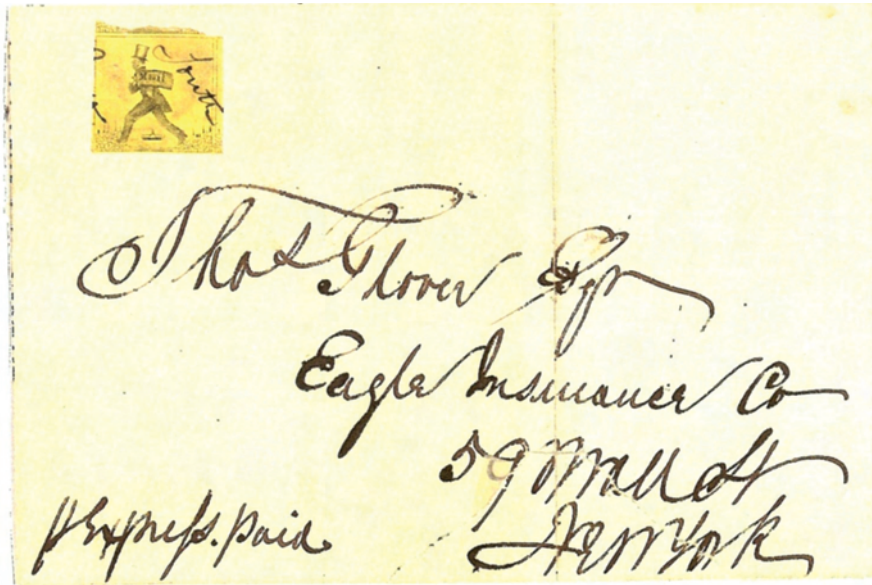 South
Mail
Thos Glover Esqr
Eagle Insurance Co
59 Wall St
New York
p Express. paid.